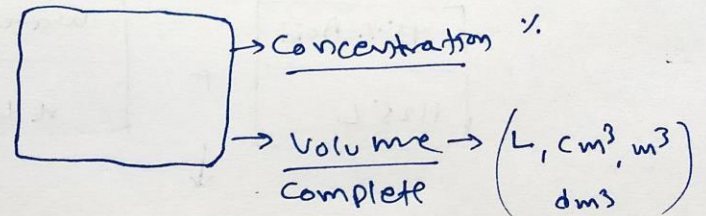 → Concentration %
→ Volume → (L, cm³, m³
complete dm3)